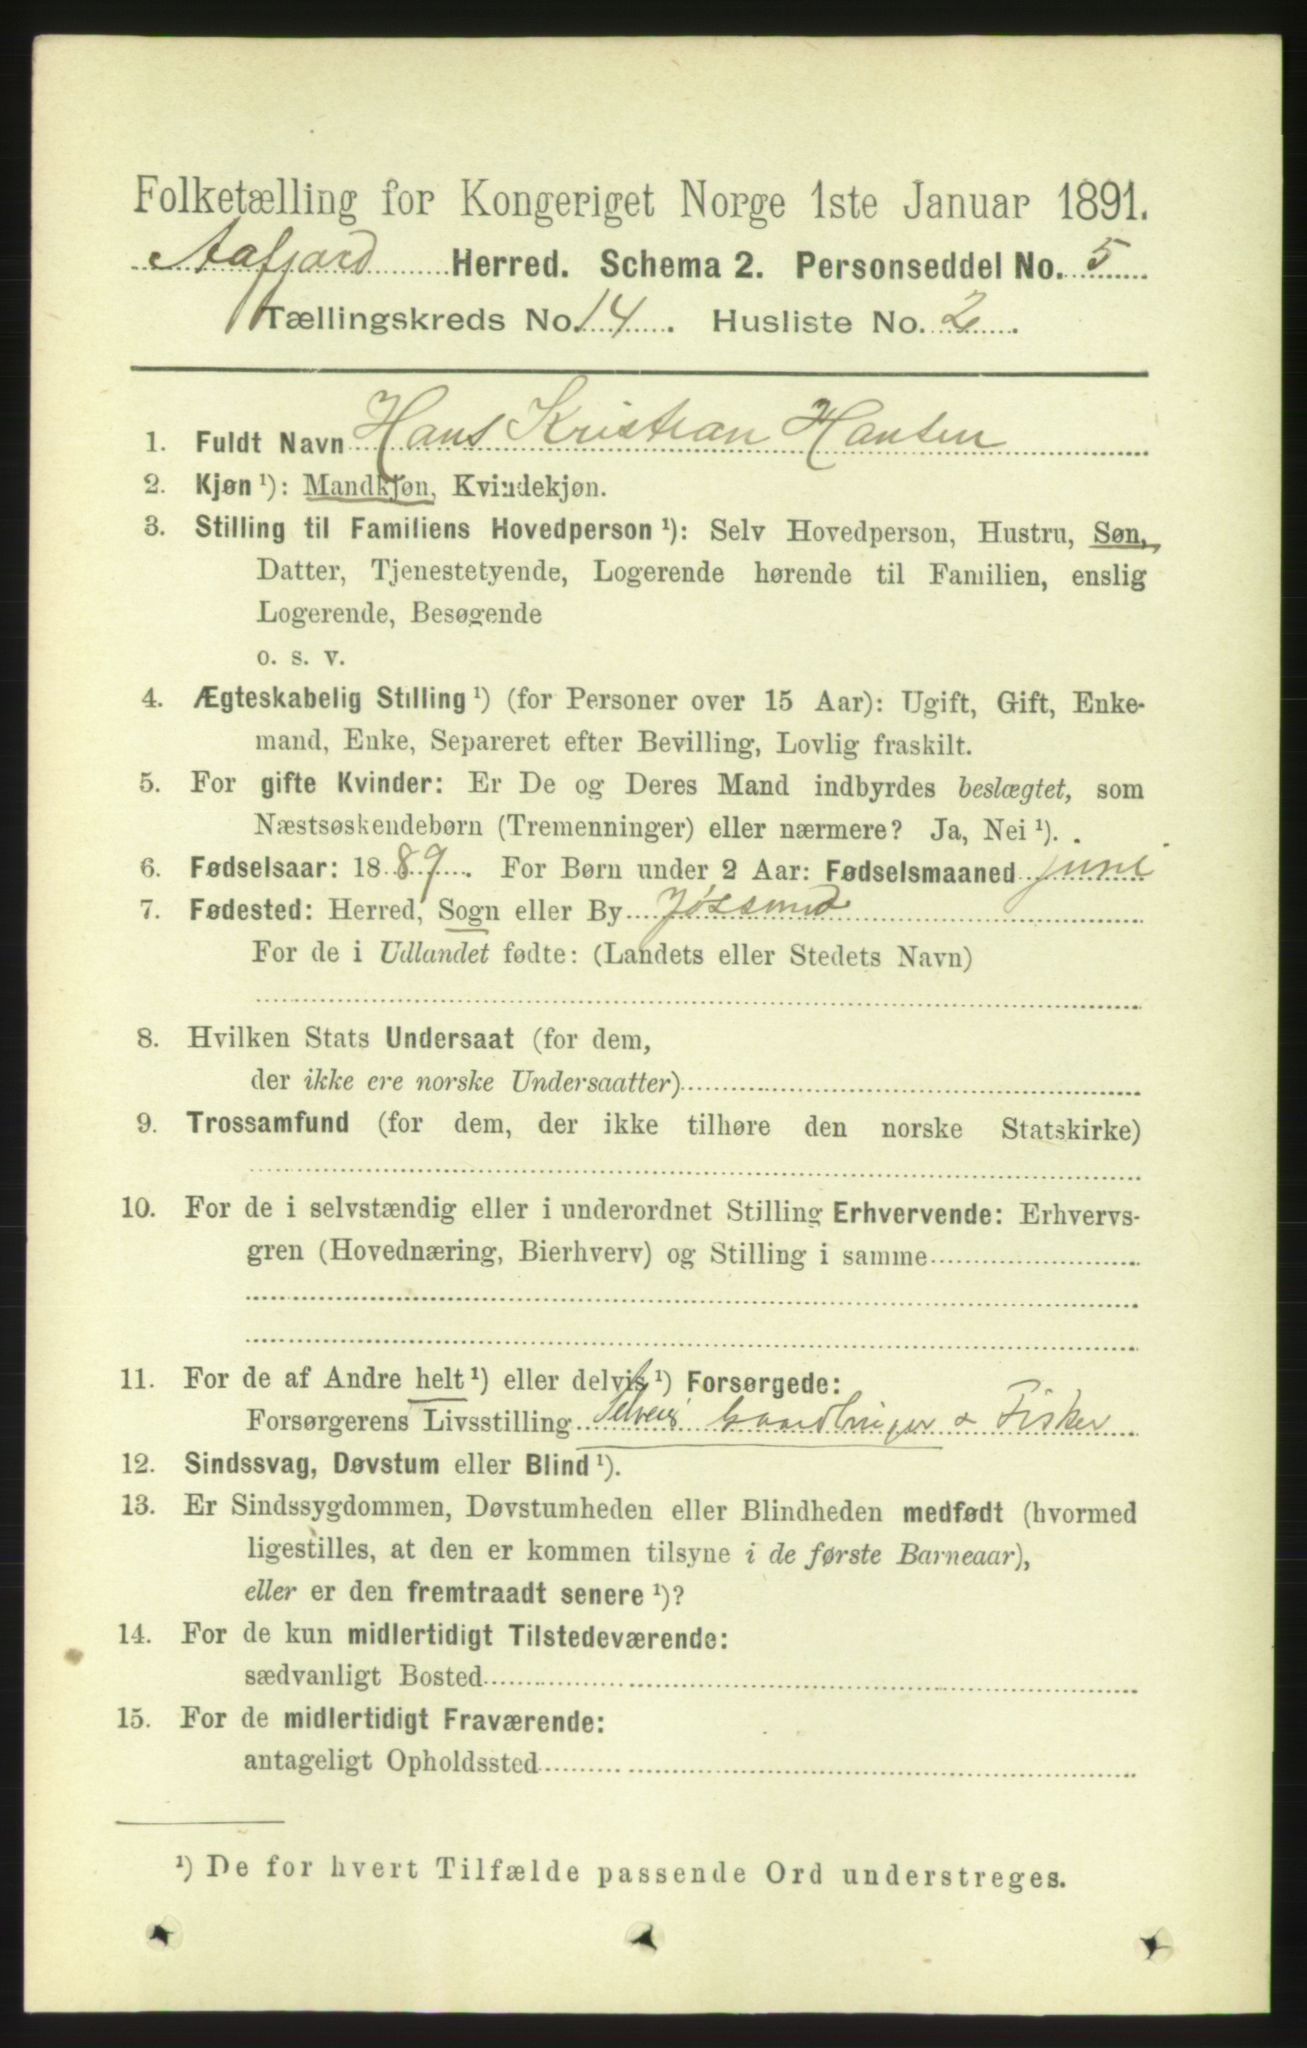 Folketælling for Kongeriget Norge 1ste Januar 1891.
Aafjord Herred. Schema 2. Personseddel No. 5
Tællingskreds No. 14. Husliste No. 2.
1. Fuldt Navn Hans Kristian Hansen
2. Kjøn ¹): Mandkjøn, Kvindekjøn.
3. Stilling til Familiens Hovedperson ¹): Selv Hovedperson, Hustru, Søn,
Datter, Tjenestetyende, Logerende hørende til Familien, enslig
Logerende, Besøgende
o. s. v.
4. Ægteskabelig Stilling ¹) (for Personer over 15 Aar): Ugift, Gift, Enke-
mand, Enke, Separeret efter Bevilling, Lovlig fraskilt.
5. For gifte Kvinder: Er De og Deres Mand indbyrdes beslægtet, som
Næstsøskendebørn (Tremenninger) eller nærmere? Ja, Nei ¹).
6. Fødselsaar: 1889. For Børn under 2 Aar: Fødselsmaaned juni
7. Fødested: Herred, Sogn eller By Jøssund
For de i Udlandet fødte: (Landets eller Stedets Navn)
8. Hvilken Stats Undersaat (for dem,
der ikke ere norske Undersaatter)
9. Trossamfund (for dem, der ikke tilhøre den norske Statskirke)
10. For de i selvstændig eller i underordnet Stilling Erhvervende: Erhvervs-
gren (Hovednæring, Bierhverv) og Stilling i samme
11. For de af Andre helt ¹) eller delvis ¹) Forsørgede:
Forsørgerens Livsstilling Selveier Gaardbruger & Fisker
12. Sindssvag, Døvstum eller Blind ¹).
13. Er Sindssygdommen, Døvstumheden eller Blindheden medfødt (hvormed
ligestilles, at den er kommen tilsyne i de første Barneaar),
eller er den fremtraadt senere ¹)?
14. For de kun midlertidigt Tilstedeværende:
sædvanligt Bosted
15. For de midlertidigt Fraværende:
antageligt Opholdssted
¹) De for hvert Tilfælde passende Ord understreges.